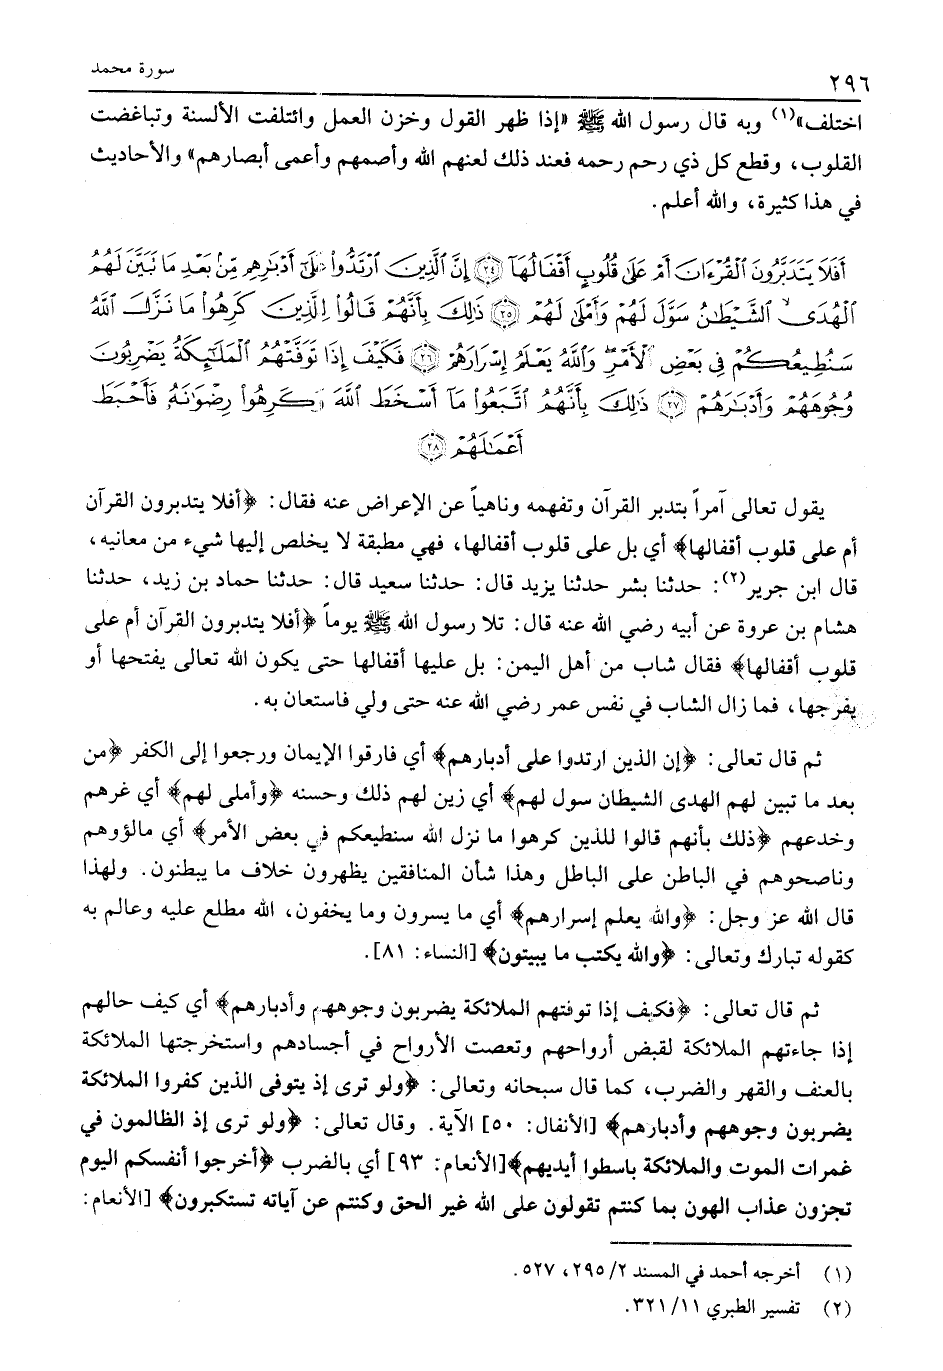 سورة محمد
٢٩٦
اختلف»(١) وبه قال رسول الله ﷺ «إذا ظهر القول وخزن العمل وائتلفت الألسنة وتباغضت
القلوب، وقطع كل ذي رحم رحمه فعند ذلك لعنهم الله وأصمهم وأعمى أبصارهم» والأحاديث
في هذا كثيرة، والله أعلم.
أَفَلَا يَتَدَبَّرُونَ ٱلْقُرْءَانَ أَمْ عَلَىٰ قُلُوبٍ أَقْفَالُهَآ ﴿٢٤﴾ إِنَّ ٱلَّذِينَ ٱرْتَدُّوا۟ عَلَىٰٓ أَدْبَٰرِهِم مِّنۢ بَعْدِ مَا تَبَيَّنَ لَهُمُ
ٱلْهُدَى ۙ ٱلشَّيْطَٰنُ سَوَّلَ لَهُمْ وَأَمْلَىٰ لَهُمْ ﴿٢٥﴾ ذَٰلِكَ بِأَنَّهُمْ قَالُوا۟ لِلَّذِينَ كَرِهُوا۟ مَا نَزَّلَ ٱللَّهُ
سَنُطِيعُكُمْ فِى بَعْضِ ٱلْأَمْرِ ۖ وَٱللَّهُ يَعْلَمُ إِسْرَارَهُمْ ﴿٢٦﴾ فَكَيْفَ إِذَا تَوَفَّتْهُمُ ٱلْمَلَٰٓئِكَةُ يَضْرِبُونَ
وُجُوهَهُمْ وَأَدْبَٰرَهُمْ ﴿٢٧﴾ ذَٰلِكَ بِأَنَّهُمُ ٱتَّبَعُوا۟ مَآ أَسْخَطَ ٱللَّهَ وَكَرِهُوا۟ رِضْوَٰنَهُۥ فَأَحْبَطَ
أَعْمَٰلَهُمْ ﴿٢٨﴾
يقول تعالى آمراً بتدبر القرآن وتفهمه وناهياً عن الإعراض عنه فقال: ﴿أفلا يتدبرون القرآن
أم على قلوب أقفالها﴾ أي بل على قلوب أقفالها، فهي مطبقة لا يخلص إليها شيء من معانيه،
قال ابن جرير(٢): حدثنا بشر حدثنا يزيد قال: حدثنا سعيد قال: حدثنا حماد بن زيد، حدثنا
هشام بن عروة عن أبيه رضي الله عنه قال: تلا رسول الله ﷺ يوماً ﴿أفلا يتدبرون القرآن أم على
قلوب أقفالها﴾ فقال شاب من أهل اليمن: بل عليها أقفالها حتى يكون الله تعالى يفتحها أو
يفرجها، فما زال الشاب في نفس عمر رضي الله عنه حتى ولي فاستعان به.
ثم قال تعالى: ﴿إن الذين ارتدوا على أدبارهم﴾ أي فارقوا الإيمان ورجعوا إلى الكفر ﴿من
بعد ما تبين لهم الهدى الشيطان سول لهم﴾ أي زين لهم ذلك وحسنه ﴿وأملى لهم﴾ أي غرهم
وخدعهم ﴿ذلك بأنهم قالوا للذين كرهوا ما نزل الله سنطيعكم في بعض الأمر﴾ أي مالؤوهم
وناصحوهم في الباطن على الباطل وهذا شأن المنافقين يظهرون خلاف ما يبطنون. ولهذا
قال الله عز وجل: ﴿والله يعلم إسرارهم﴾ أي ما يسرون وما يخفون، الله مطلع عليه وعالم به
كقوله تبارك وتعالى: ﴿والله يكتب ما يبيتون﴾ [النساء: ٨١].
ثم قال تعالى: ﴿فكيف إذا توفتهم الملائكة يضربون وجوههم وأدبارهم﴾ أي كيف حالهم
إذا جاءتهم الملائكة لقبض أرواحهم وتعصت الأرواح في أجسادهم واستخرجتها الملائكة
بالعنف والقهر والضرب، كما قال سبحانه وتعالى: ﴿ولو ترى إذ يتوفى الذين كفروا الملائكة
يضربون وجوههم وأدبارهم﴾ [الأنفال: ٥٠] الآية. وقال تعالى: ﴿ولو ترى إذ الظالمون في
غمرات الموت والملائكة باسطوا أيديهم﴾[الأنعام: ٩٣] أي بالضرب ﴿أخرجوا أنفسكم اليوم
تجزون عذاب الهون بما كنتم تقولون على الله غير الحق وكنتم عن آياته تستكبرون﴾ [الأنعام:
(١) أخرجه أحمد في المسند ٢/ ٢٩٥، ٥٢٧.
(٢) تفسير الطبري ١١/ ٣٢١.